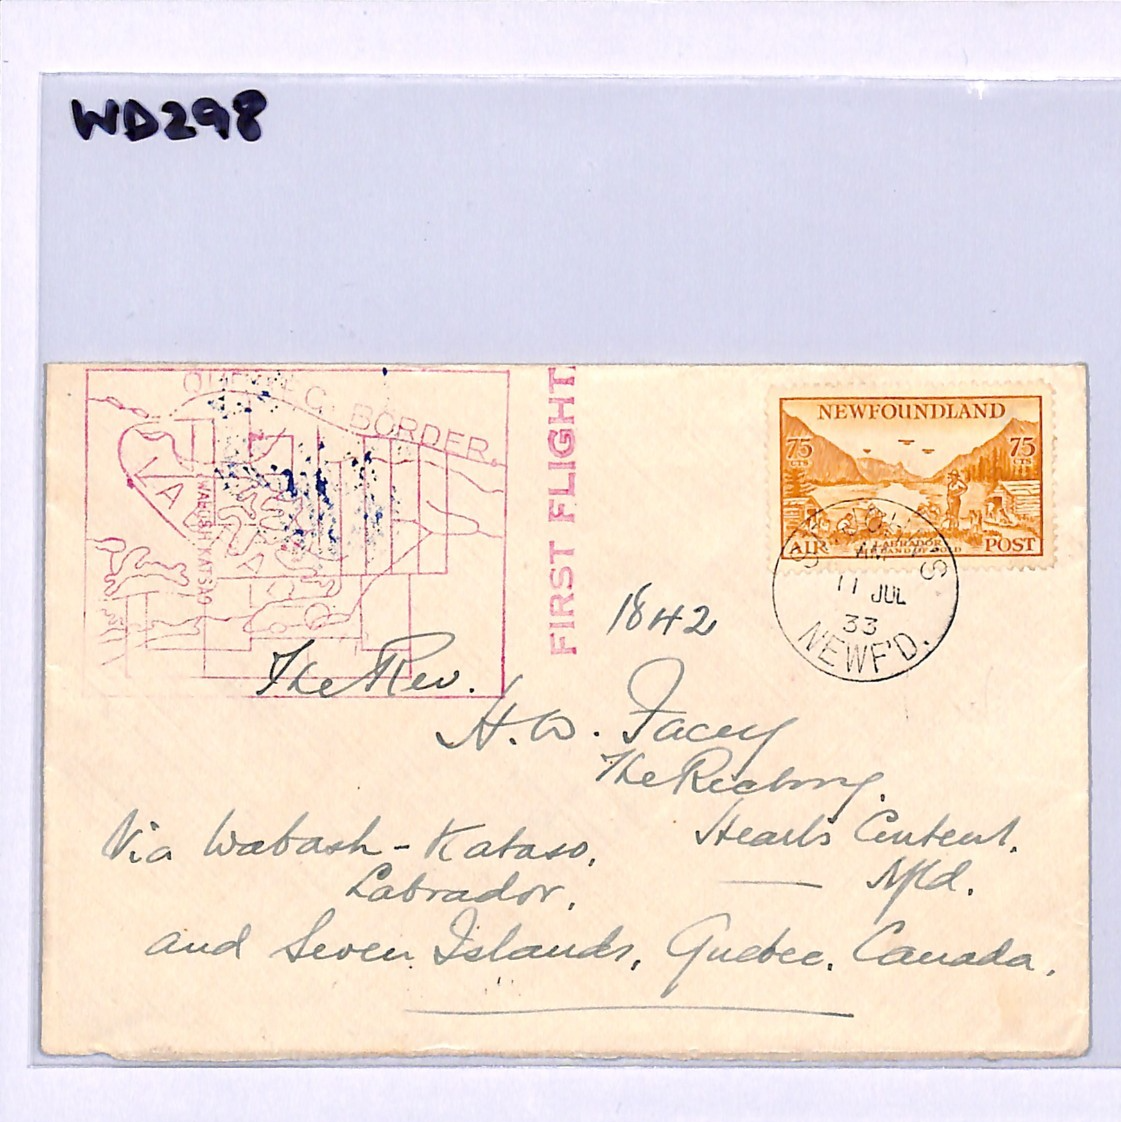 WD298
QUEBEC BORDER.
WABUSH KATSAO
FIRST FLIGHT
NEWFOUNDLAND
75 CTS
75 CTS
LABRADOR
LAND OF GOLD
AIR POST
ST. JOHN'S
AM
11 JUL
33
NEWF'D.
1842
The Rev.
H. W. Facey
The Rectory.
Heart's Content.
Nfld.
Via Wabash-Katsao,
Labrador,
and Seven Islands, Quebec. Canada.